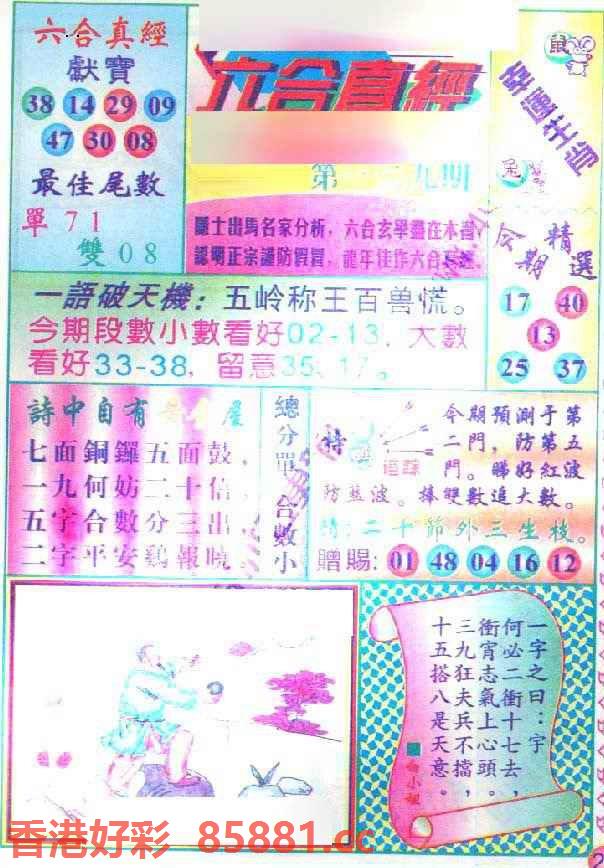 六合真經
獻寶
38 14 29 09
47 30 08
最佳尾數
單 71
雙 08
六合真經
第 九期
隱士出馬名家分析，六合玄學盡在本書
認明正宗謹防假冒，龍年佳作六合真經
鼠
幸運生肖
兔
今期精選
17 40
13
25 37
一語破天機：五岭称王百兽慌。
今期段數小數看好02-13，大數
看好33-38，留意35、17。
詩中自有
七面銅鑼五面鼓，
一九何妨二十倍，
五字合數分三出，
二字平安鷄報曉。
總分單
合數小
特
追踪
今期預測于第
二門，防第五
門。睇好紅波
防藍波。捧雙數追大數。
詩：二十節外三生枝。
贈賜：01 48 04 16 12
一字之曰：宇
何必二衝十七去，
衝宵志氣上心頭。
三九狂夫兵不擋，
十五搭八是天意。
香港好彩 85881.cc